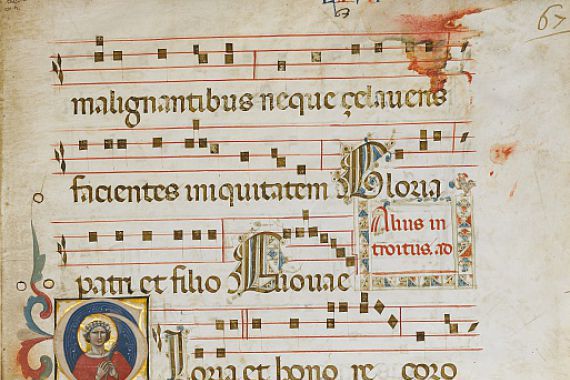 67
malignantibus neque çelaueris
facientes iniquitatem Gloria
patri et filio Euouae
Alius in
troitus. ad
Gloria et hono re coro